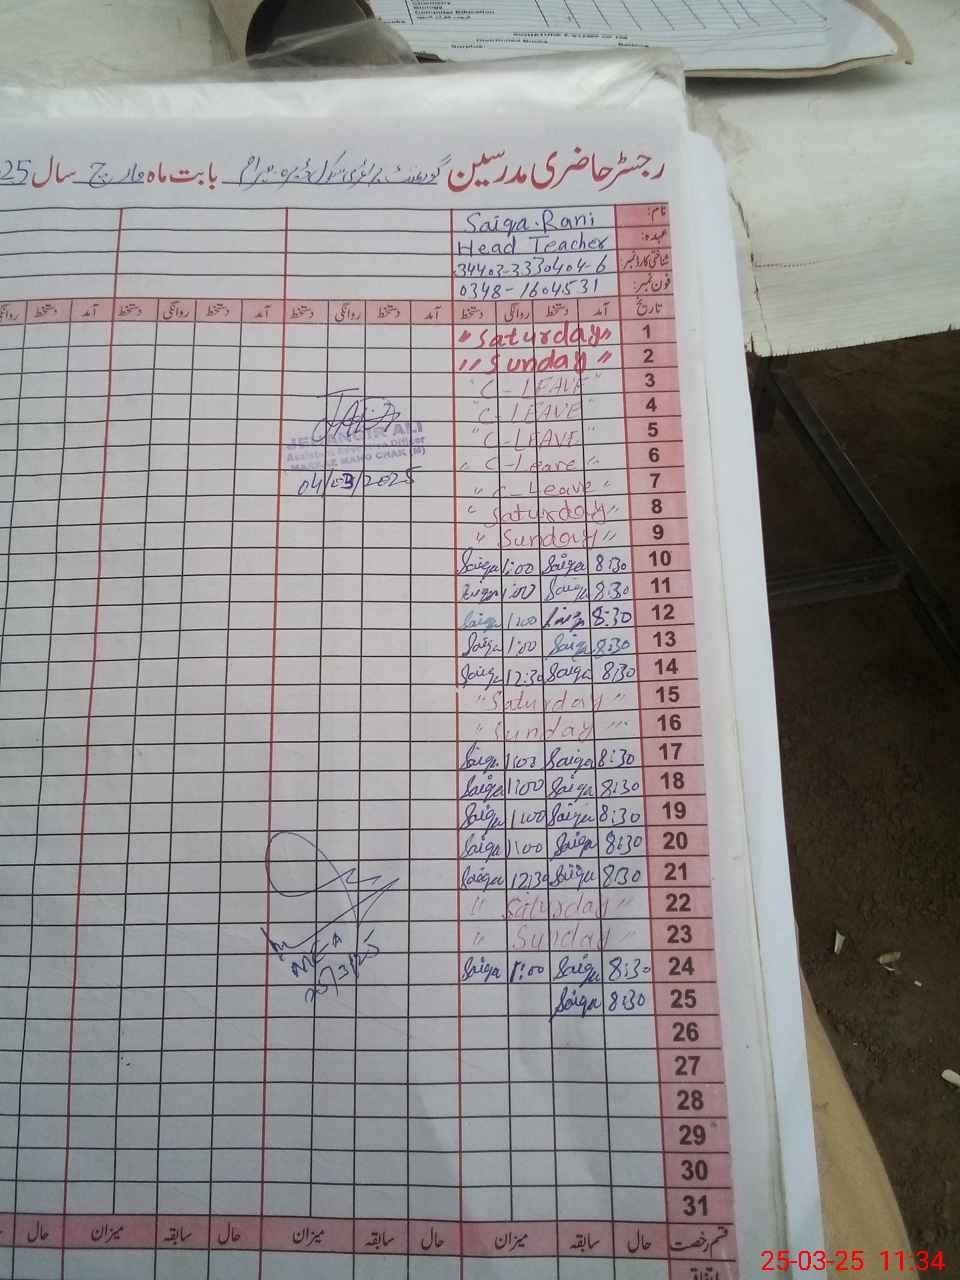 Chemistry
Biology
Computer Education
رجسٹر حاضری مدرسین گورنمنٹ پرائمری سکول بابت ماہ مارچ سال 25
نام: Saiqa Rani
عہدہ: Head Teacher
شناختی کارڈ نمبر: 34403-3330404-6
فون نمبر: 0348-1604531
تاریخ آمد دستخط روانگی دستخط آمد دستخط روانگی دستخط آمد دستخط روانگی دستخط آمد دستخط روانگی
1 "Saturday"
2 "Sunday"
3 "C-LEAVE"
4 "C-LEAVE"
5 "C-LEAVE"
6 "C-Leave"
7 "C-Leave"
8 "Saturday"
9 "Sunday"
10 8:30 Saiqa 1:00 Saiqa
11 8:30 Saiqa 1:00 Saiqa
12 8:30 Saiqa 1:00 Saiqa
13 8:30 Saiqa 1:00 Saiqa
14 8:30 Saiqa 12:30 Saiqa
15 "Saturday"
16 "Sunday"
17 8:30 Saiqa 1:00 Saiqa
18 8:30 Saiqa 1:00 Saiqa
19 8:30 Saiqa 1:00 Saiqa
20 8:30 Saiqa 1:00 Saiqa
21 8:30 Saiqa 12:30 Saiqa
22 "Saturday"
23 "Sunday"
24 8:30 Saiqa 1:00 Saiqa
25 8:30 Saiqa
26
27
28
29
30
31
JEHANGIR ALI
Assistant Education Officer
MARKAZ MANO CHAK (M)
04/03/2025
MEA
25/3/25
قسم رخصت حال سابقہ میزان حال سابقہ میزان حال سابقہ میزان حال
25-03-25 11:34